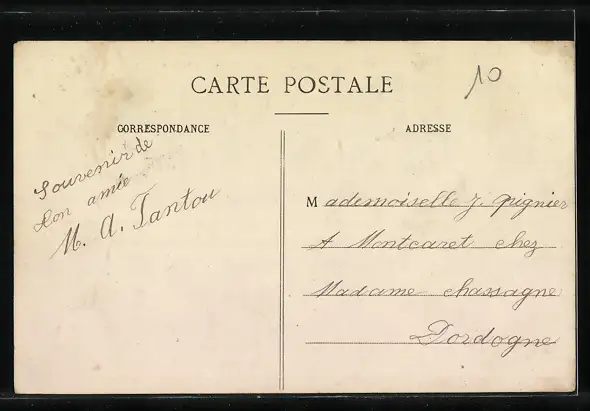 CARTE POSTALE
10
CORRESPONDANCE
Souvenir de
ton amie
M. A. Tantou
ADRESSE
Mademoiselle J.
A Montcaret chez
Madame chassagne
Dordogne